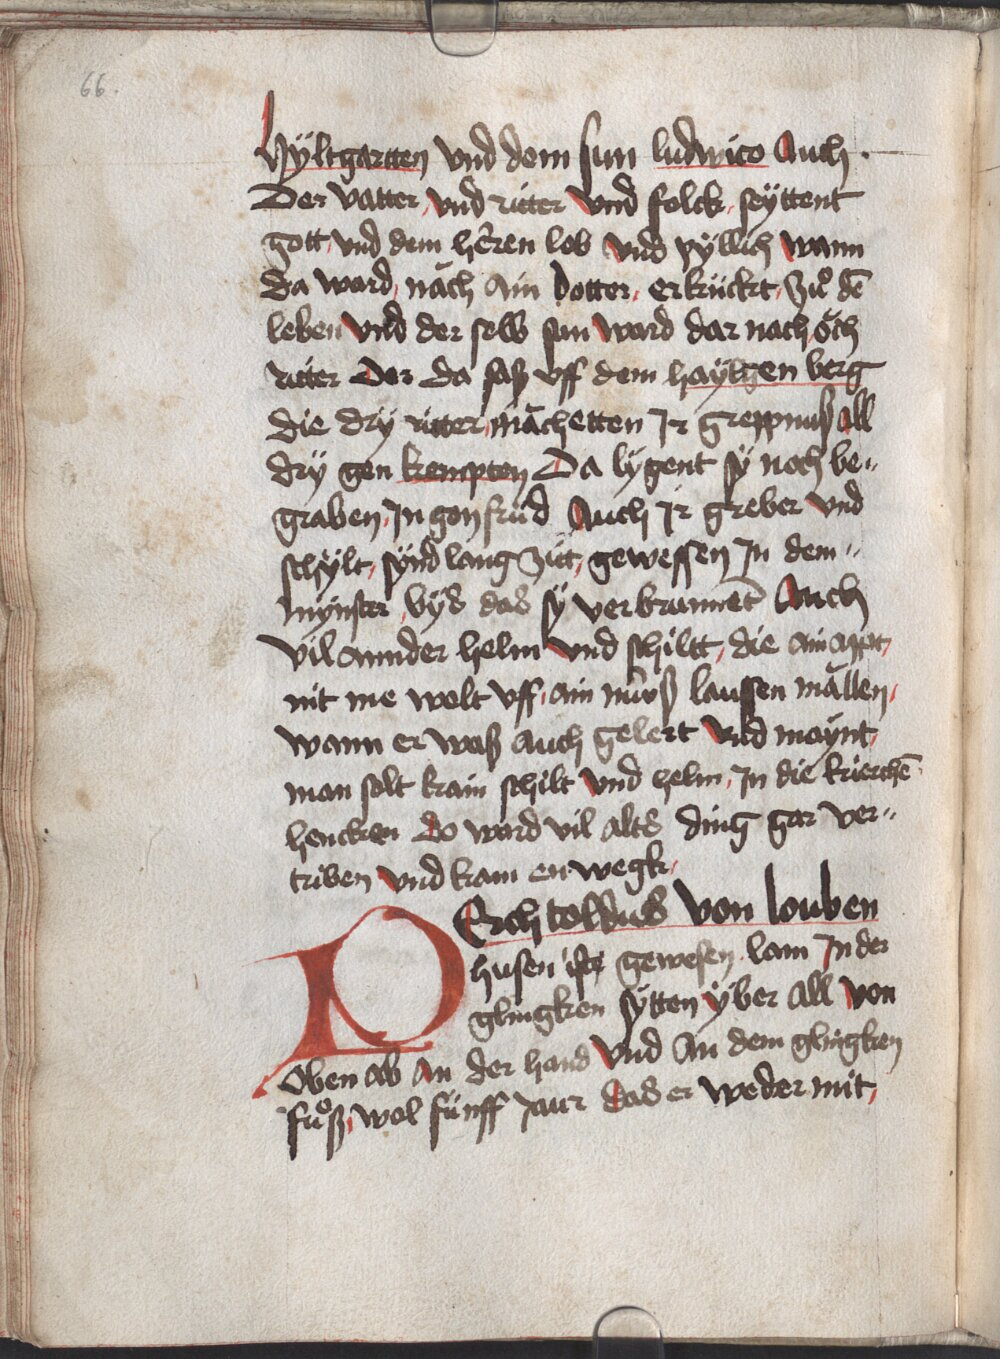 66.
hÿltgartten vnd dem sun ludwico Auch
Der vatter vnd ritter vnd folck seÿttent
gott vnd dem hêren lob vnd pÿllich wann
da ward nǎch Ain dotter erkückt zuͦ dē
leben vnd der selb sun ward dar nach ǒch
ritter Der da saß vff dem haÿlgen berg
die drÿ ritter mǎchetten Ir greppnuß All
drÿ gen kempten Da lÿgent sÿ noch be〃
graben Auch Ir greber vnd
schÿlt sÿnd lang zit gewessen In dem〃
mÿnster bÿs das sÿ verbrannet Auch
vil annder helm vnd schiltt die ain appt
nit me wolt vff ain nüws laussen mǎllen
wann er waß Auch gelert vnd maÿnt
man solt kain schilt vnd helm In die kierchē
hencken Do ward vil altes ding gar ver〃
triben vnd kam en wegk
Echtoldus von louben
husen ist gewesen lam In der
glingken sÿtten ÿber All von
Oben ab An der hand vnd An dem glingken
fuͦß wol fünff Jaur das er weder mit